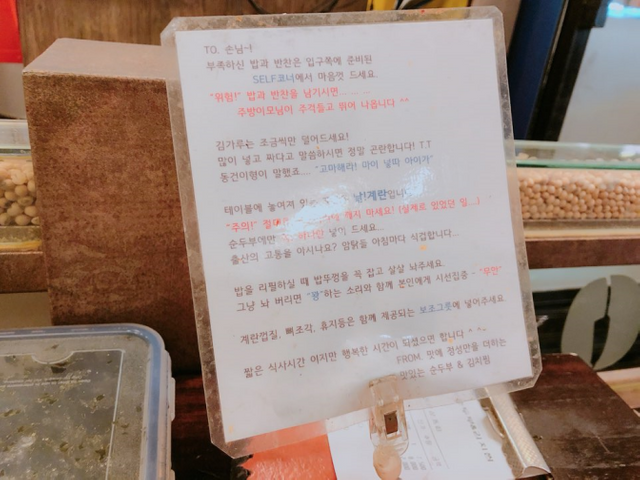 TO. 손님~!
부족하신 밥과 반찬은 입구쪽에 준비된
SELF코너에서 마음껏 드세요.
"위험!" 밥과 반찬을 남기시면...........
주방이모님이 주걱들고 뛰어 나옵니다 ^^
김가루는 조금씩만 덜어드세요!
많이 넣고 짜다고 말씀하시면 정말 곤란합니다! T.T
동건이형이 말했죠... "고마해라! 마이 넣따 아이가"
테이블에 놓여져 있 날!계란입니다
"주의!" 절대 깨지 마세요! (실제로 있었던 일...)
순두부에만 넣어 드세요...
출산의 고통을 아시나요? 암탉들 아침마다 식겁합니다...
밥을 리필하실 때 밥뚜껑을 꼭 잡고 살살 놔주세요.
그냥 놔 버리면 "쾅"하는 소리와 함께 본인에게 시선집중 - "무안"
계란껍질, 뼈조각, 휴지등은 함께 제공되는 보조그릇에 넣어주세요
짧은 식사시간 이지만 행복한 시간이 되셨으면 합니다 ^^*
FROM. 맛에 정성만을 더하는
맛있는 순두부 & 김치찜